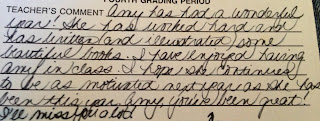 FOURTH GRADING PERIOD
TEACHER'S COMMENT Amy has had a wonderful
year! She has worked hard and
has written (and illustrated) some
beautiful books. I have enjoyed having
Amy in class. I hope she continues
to be as motivated next year as she has
been this year. Amy, you've been great!
I'll miss you a lot!